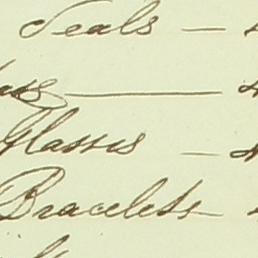 Seals —
Glasses —
Bracelets —